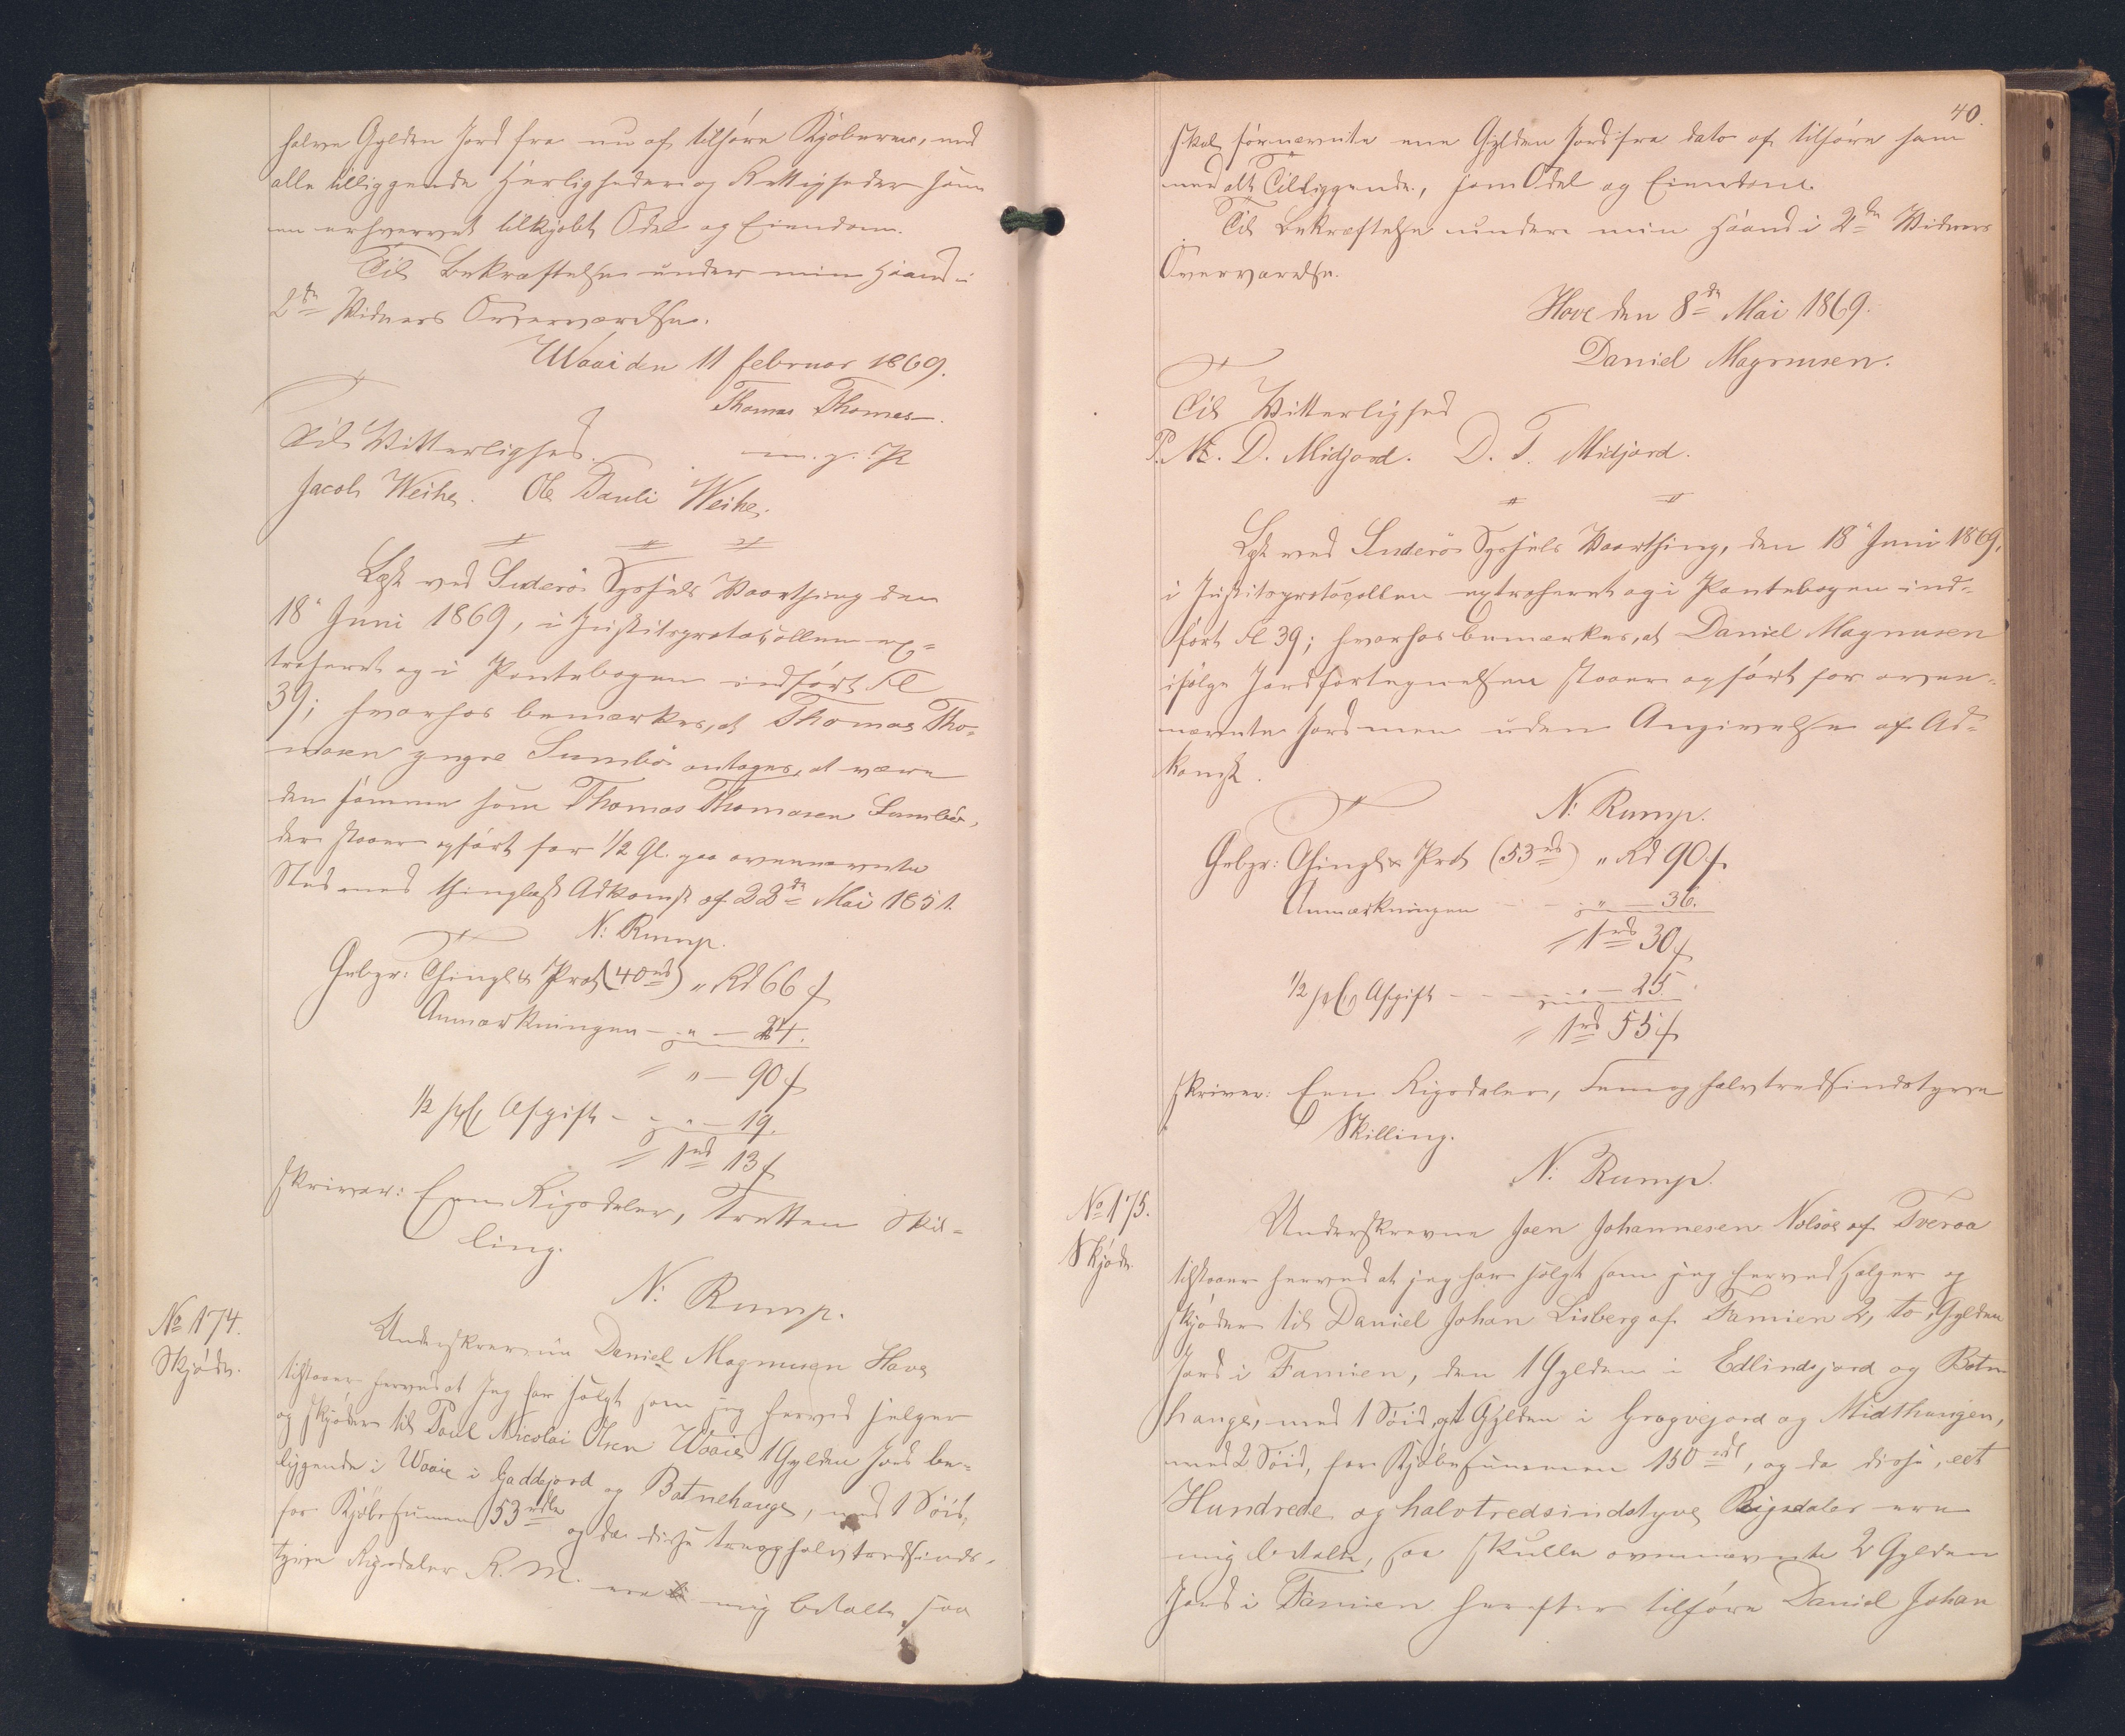 halve Gylden Jord fra nu af tilhøre Kjøberen, med
alle tilliggende Herligheder og Rettigheder som
en erhvervet tilkjøbt Odel og Eiendom.
Til Bekræftelse under min Haand i
2de Vidners Overværelse.
Waai den 11 februar 1869.
Thomas Thomes
Til Vitterlighed. m. g. P
Jacob Weihe. Ole Pauli Weihe.
Læst ved Suderø Syssels Vaarthing den
18 Juni 1869, i Justitsprotocollen ex-
traheret og i Pantebogen indført Fol
39; hvorhos bemærkes, at Thomas Tho-
masen yngre Sumbø antages, at være
den samme som Thomas Thomasen Sumbø,
der staaer opført for 1/2 Gl. paa ovennævnte
Sted med thinglæst Adkomst af 22de Mai 1851.
N: Rump.
Gebyr: Thingl & Prot (40rd) " Rd 66 s
Anmærkningen - " - 24.
" - 90 s
1/2 pCt Afgift - " - 19.
1rd 13 s
skriver: Een Rigsdaler, Tretten Skil-
ling.
N: Rump.
No 174.
Skjøde.
Underskrevne Daniel Magnusen Hove
tilstaaer herved at Jeg har solgt som jeg herved selger
og skjøder til Poul Nicolai Olsen Waaie 1 Gylden Jord be-
liggende i Waaie i Gaddejord og Botnehauge, med 1 Søid,
for Kjøbesummen 53 rdlr og da disse treoghalvtredsinds-
tyve Rigsdaler R. M. ere mig betalte, saa
40.
skal førnævnte ene Gylden Jord fra dato af tilhøre ham
med alt Tilliggende, som Odel og Eiendom.
Til Bekræftelse under min Haand i 2de Vidners
Overværelse.
Hove den 8de Mai 1869.
Daniel Magnusen.
Til Vitterlighed
P. M. D. Midjord. D. T. Midjord.
Læst ved Suderø Syssels Vaarthing, den 18 Juni 1869,
i Justitsprotocollen extraheret og i Pantebogen ind-
ført Fol 39; hvorhos bemærkes, at Daniel Magnusen
ifølge Jordfortegnelsen staaer opført for oven-
nævnte Jord men uden Angivelse af Ad-
komst.
N: Rump.
Gebyr: Thingl & Prot (53rd) " Rd 90 s
Anmærkningen - " - 36.
1rd 30 s
1/2 pCt Afgift - " - 25.
1rd 55 s
skriver: Een Rigsdaler, Femoghalvtredsindstyve
Skilling.
N: Rump.
No 175.
Skjøde.
Underskrevne Joen Johannesen Nolsøe af Tveraa
tilstaaer herved at jeg har solgt som jeg herved sælger og
skjøder til Daniel Johan Lisberg af Famien 2, to Gylden
Jord i Famien, den 1 Gylden i Edlindsjord og Botn
hauge, med 1 Søid, og 1 Gylden i Gragvejord og Midthaugen,
med 2 Søid, for Kjøbesummen 150 rdl, og da disse, eet
Hundrede og halvtredsindstyve Rigsdaler ere
mig betalte, saa skulle ovennævnte 2 Gylden
Jord i Famien herefter tilhøre Daniel Johan